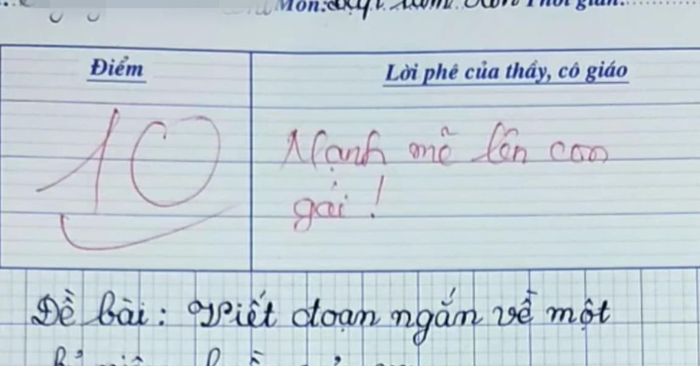 Môn: Tập làm văn Thời gian:
Điểm
Lời phê của thầy, cô giáo
10
Mạnh mẽ lên con
gái!
Đề bài: Viết đoạn ngắn về một